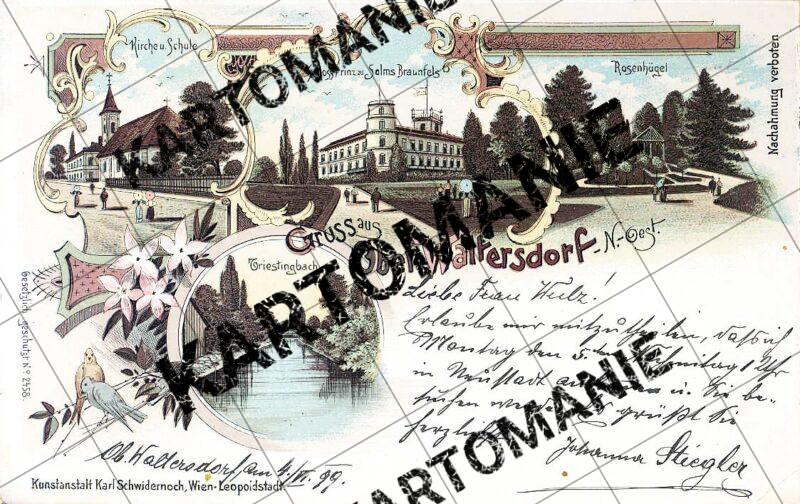 Kirche u. Schule
Schloss Prinz zu Solms Braunfels
Rosenhügel
Nachahmung verboten
Gruss aus
Ober Waltersdorf N.-Oest.
Triestingbach
Gesetzlich geschützt No 2458.
Liebe Frau Wulz!
Erlaube mir mitzutheilen, dass ich
Montag den 5. 1 Uhr
in Neustadt u. Sie be-
suchen grüßt Sie
Johanna Stiegler
Ob. Waltersdorf, am 4./II. 99.
Kunstanstalt Karl Schwidernoch, Wien-Leopoldstadt.
KARTOMANIE
KARTOMANIE
KARTOMANIE
KARTOMANIE
KARTOMANIE